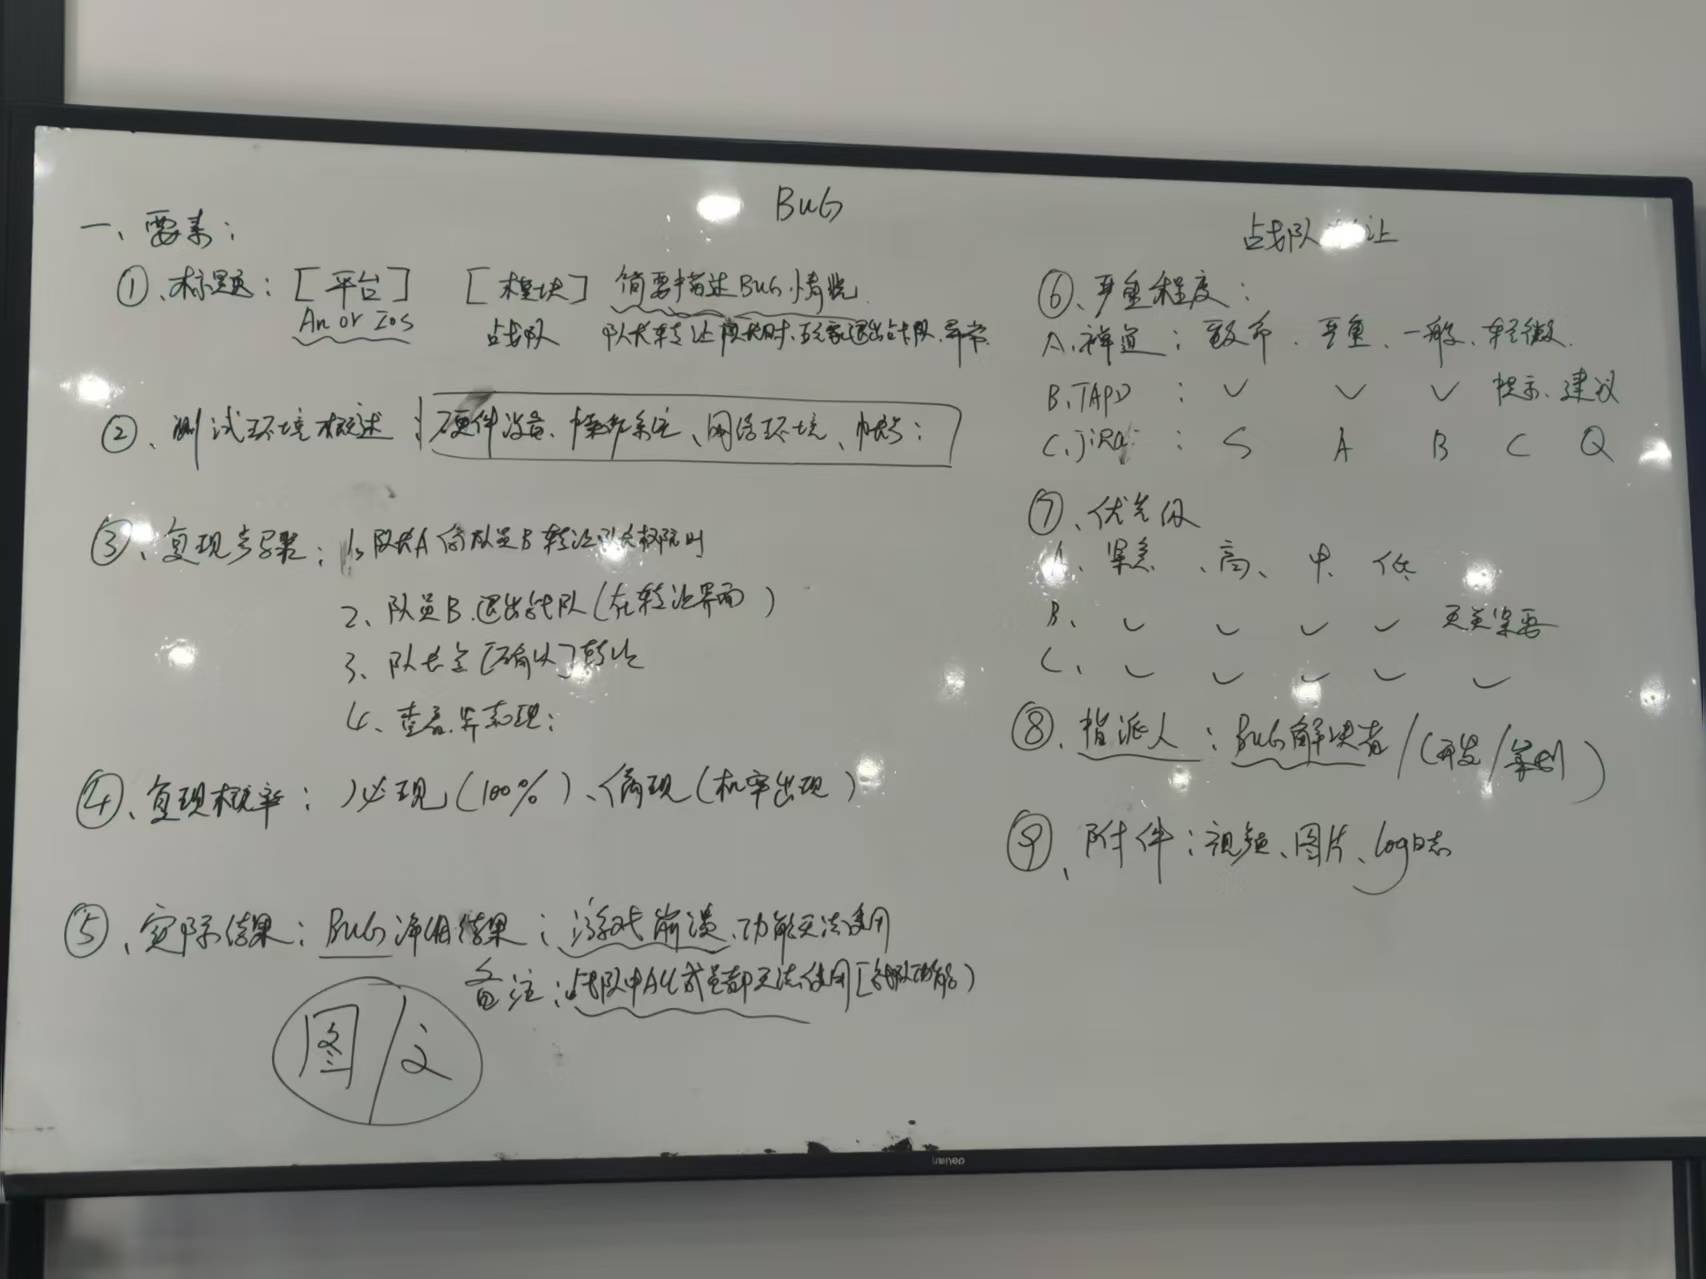 Bug
一、要素：
①、标题：[平台] [模块] 简要描述Bug情况
An or Ios 战队 队长转让队长时，玩家退出战队，异常
②、测试环境概述：硬件设备、操作系统、网络环境、帐号：
③、复现步骤：1、队长A向队员B转让队长权限时
2、队员B退出战队（在转让界面）
3、队长点[确认]转让
4、查看异常表现：
④、复现概率：必现（100%）、偶现（机率出现）
⑤、实际结果：Bug 详细结果：游戏崩溃、功能无法使用
备注：战队中All成员都无法使用[战队功能）
图/文
战队转让
⑥、严重程度：
A、禅道：致命、严重、一般、轻微
B、TAPD：✓ ✓ ✓ 提示、建议
C、jiRa：S A B C Q
⑦、优先级
A、紧急、高、中、低
B、✓ ✓ ✓ ✓ 无关紧要
C、✓ ✓ ✓ ✓ ✓
⑧、指派人：Bug解决者/（研发/策划）
⑨、附件：视频、图片、log日志